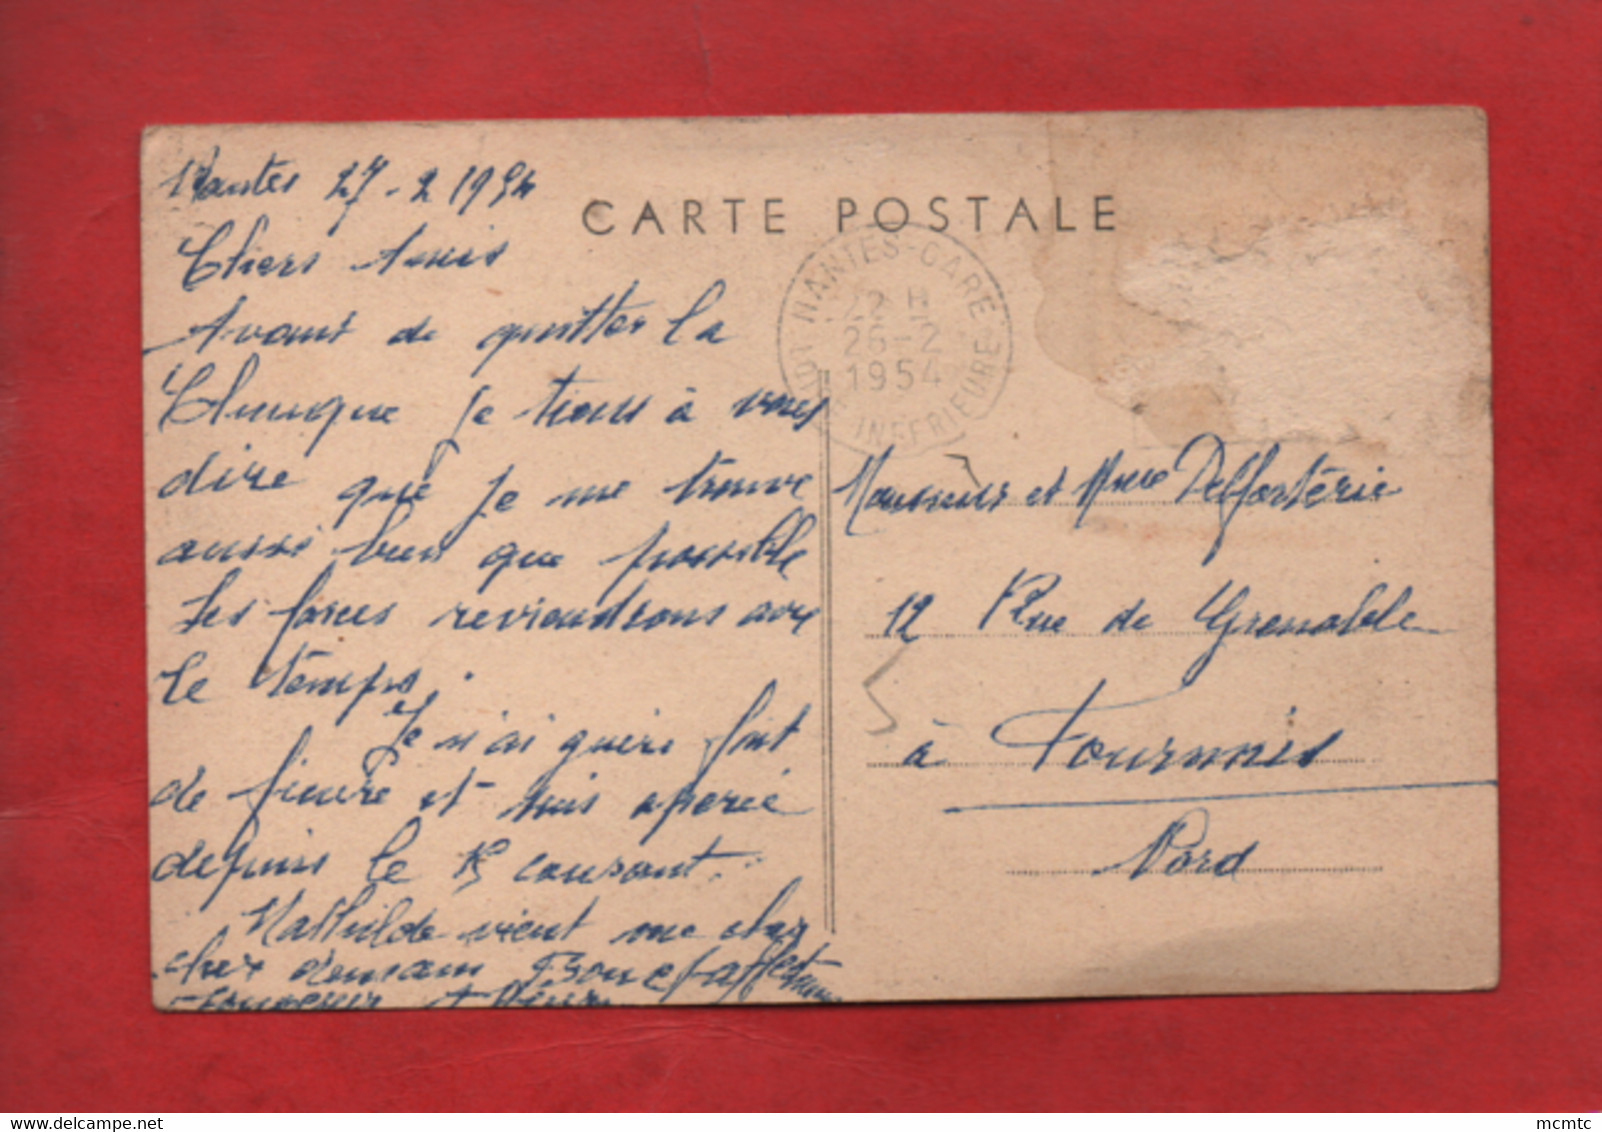 Nantes 27-2 1954
Chers Amis
Avant de quitter la
Clinique je tiens à vous
dire que je me trouve
aussi bien que possible
les forces reviendrons avec
le temps.
Je n'ai guère fait
de fièvre et suis opérée
depuis le 15 courant.
Mathilde vient me cher
cher demain Bon et affect
souvenir
CARTE POSTALE
NANTES-GARE
22 H
26-2
1954
LOIRE INFERIEURE
Monsieur et Mme Delfosterie
12 Rue de Grenoble
à Fourmies
Nord
mcmtc